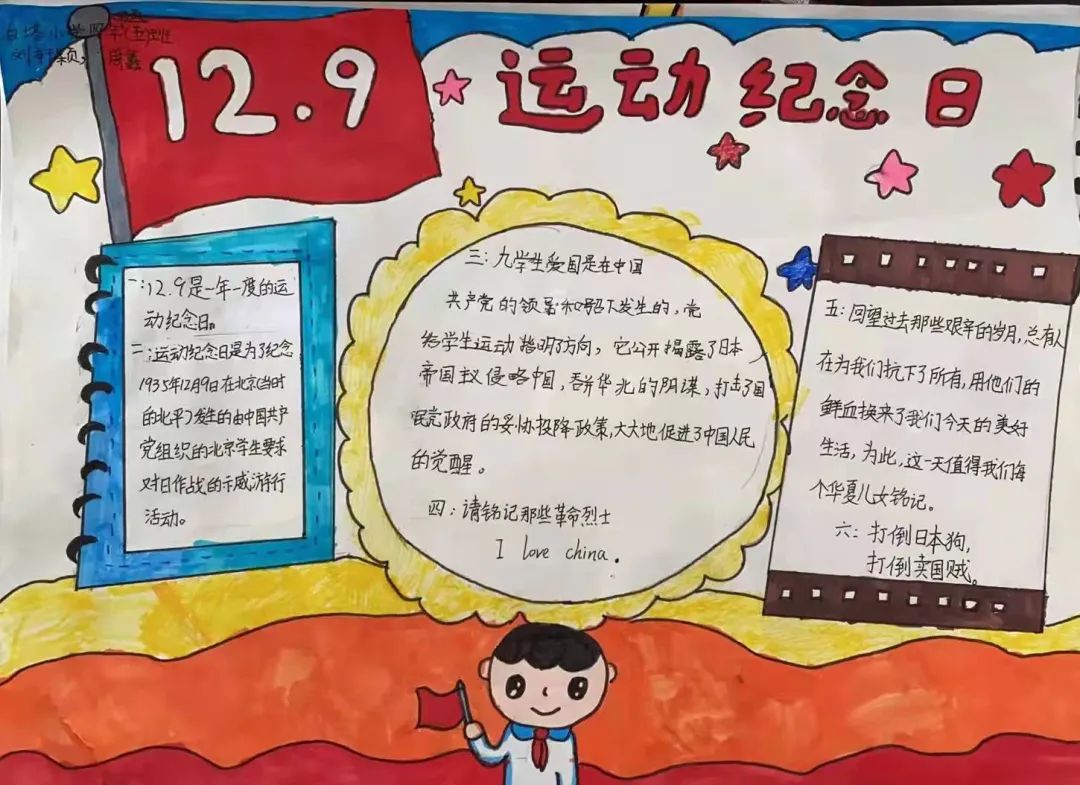 白塔小学四年(五)班
12.9
运动纪念日
一:12.9是一年一度的运
动纪念日。
二:运动纪念日是为了纪念
1935年12月9日在北京(当时
的北平)发生的由中国共产
党组织的北京学生要求
对日作战的示威游行
活动。
三:九学生爱国是在中国
共产党的领导和号召下发生的,党
给学生运动指明了方向,它公开揭露了日本
帝国主义侵略中国,吞并华北的阴谋,打击了国
民党政府的妥协投降政策,大大地促进了中国人民
的觉醒。
四:请铭记那些革命烈士
I love china.
五:回望过去那些艰辛的岁月,总有人
在为我们抗下了所有,用他们的
鲜血换来了我们今天的美好
生活,为此,这一天值得我们每
个华夏儿女铭记。
六:打倒日本狗,
打倒卖国贼。